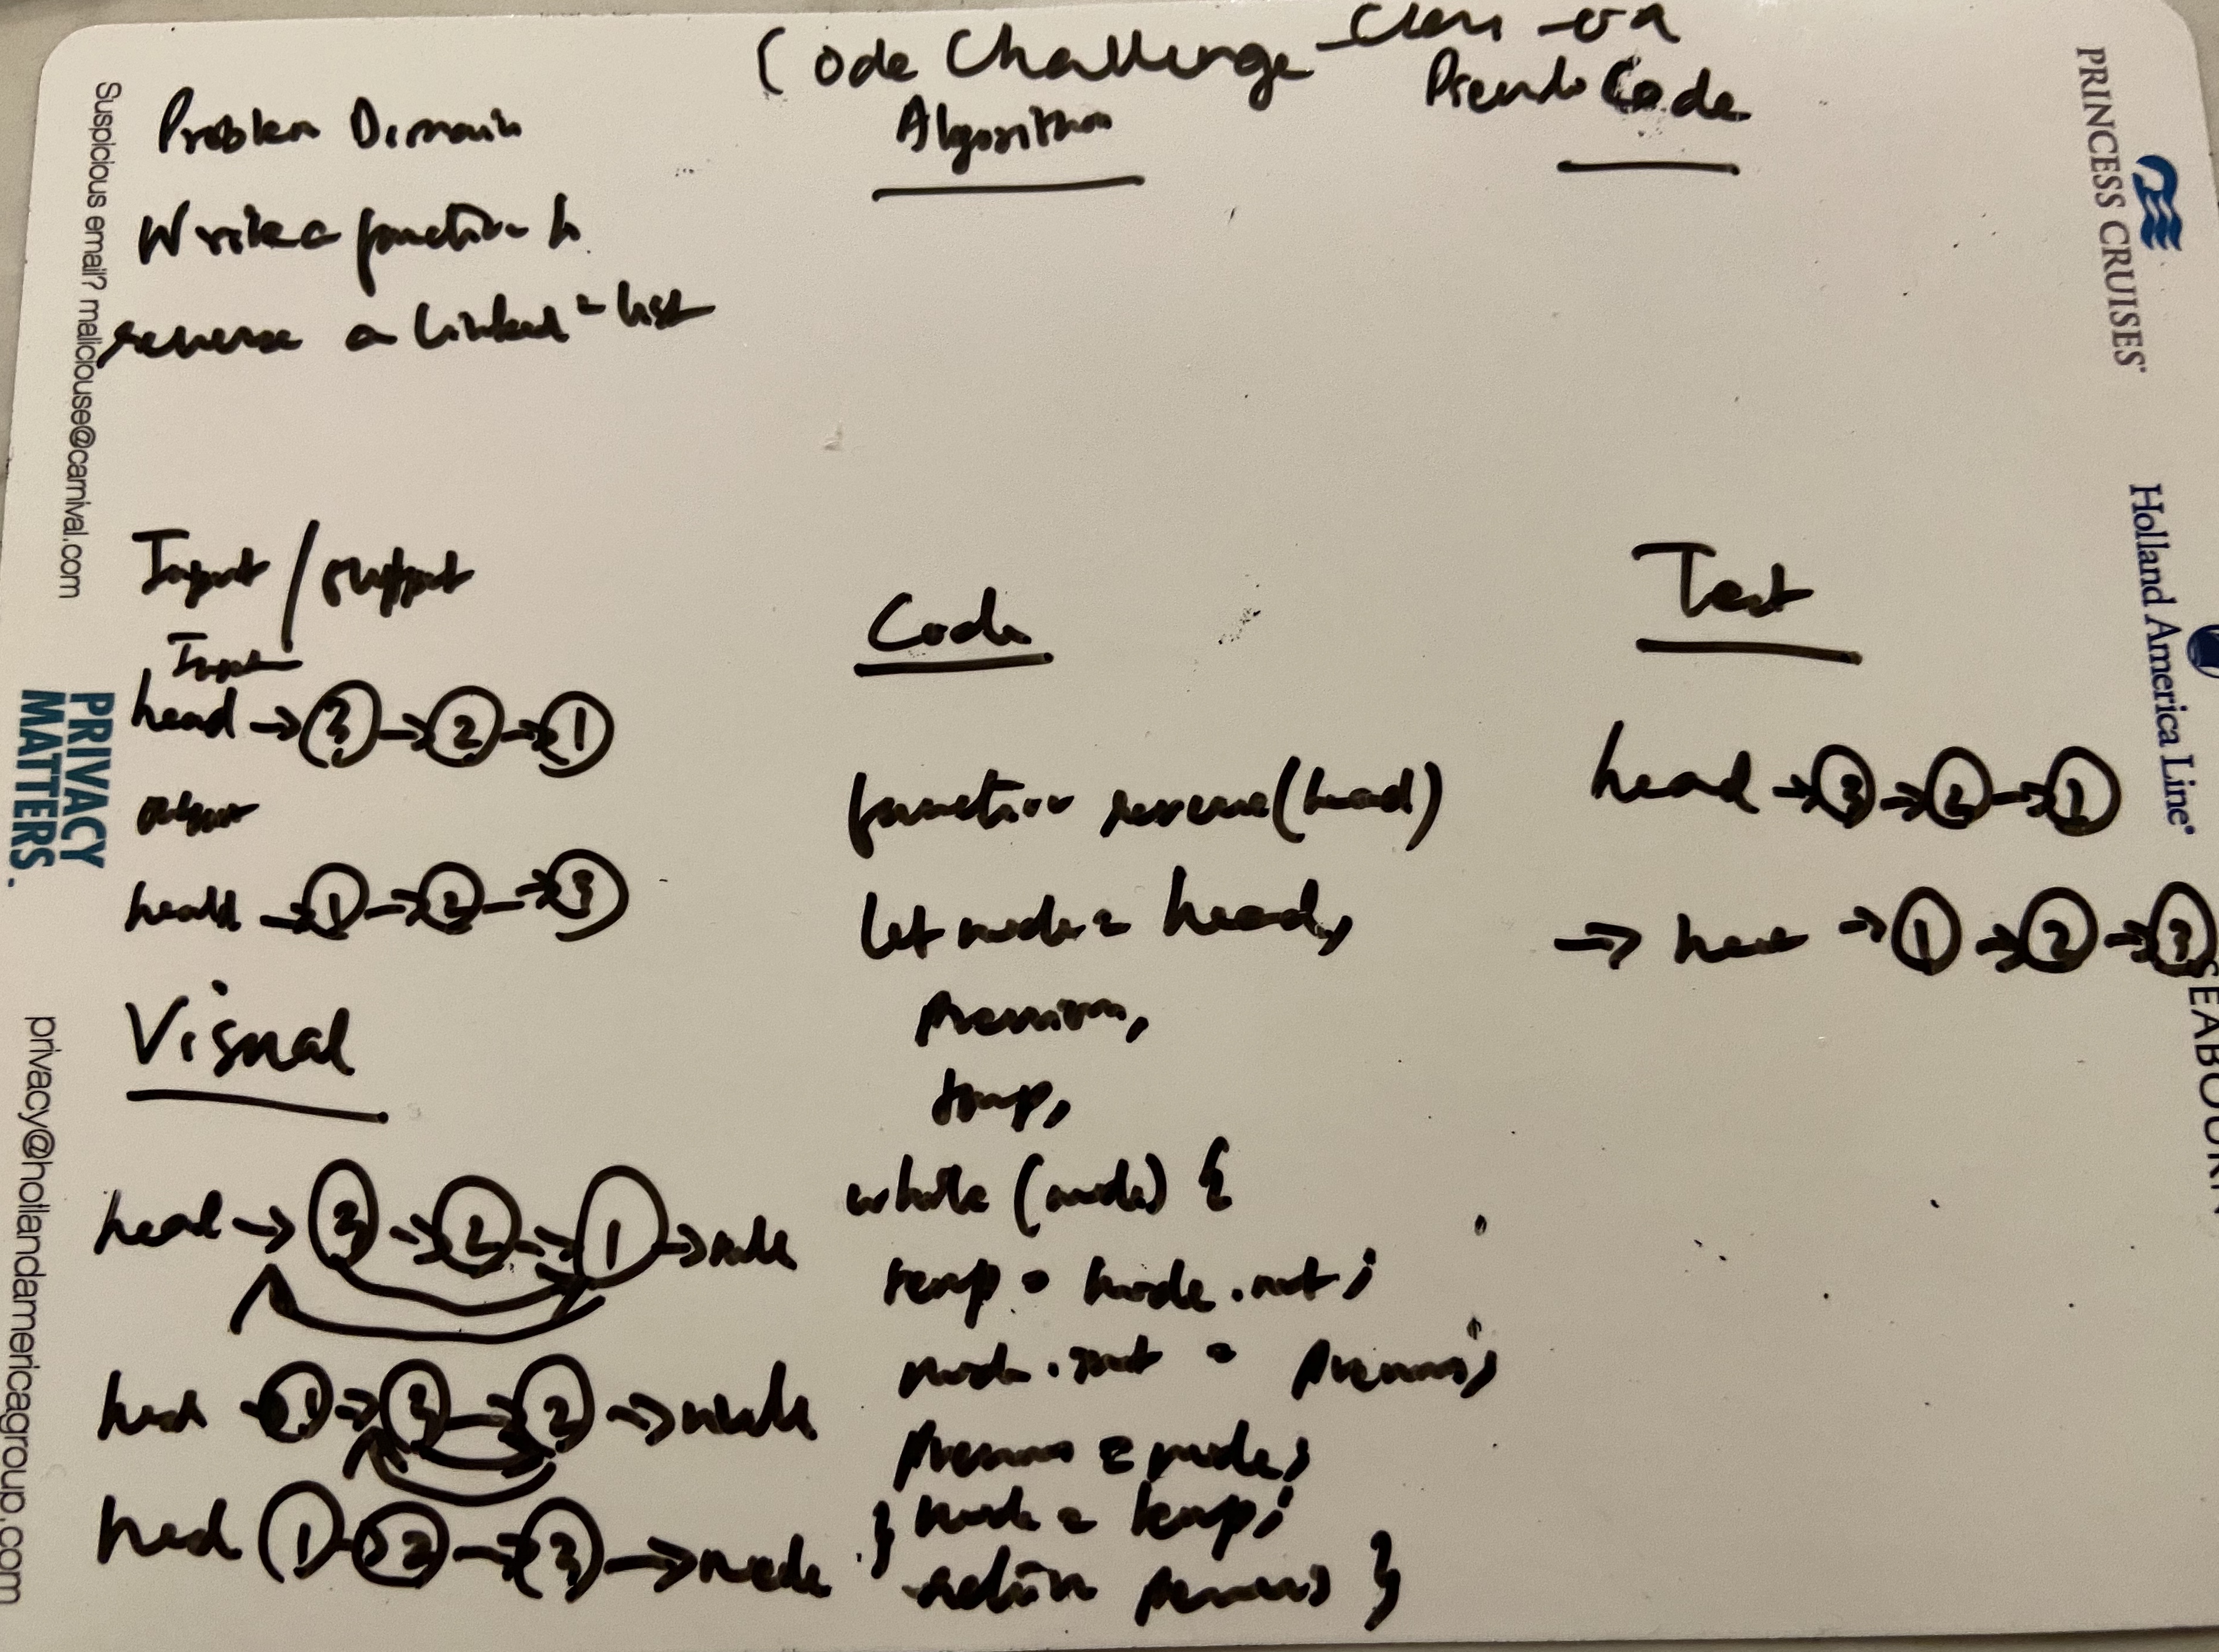 Code Challenge - Class - 02
Problem Domain
Algorithm
Pseudo Code
Write a function to
reverse a linked-list
Input / Output
Input
head → 3 → 2 → 1
output
head → 1 → 2 → 3
Visual
head → 3 → 2 → 1 → node
head → 1 → 3 → 2 → node
head 1 → 2 → 3 → node
Code
function reverse(head)
let node = head,
previous,
temp,
while (node) {
temp = node.next;
node.next = previous;
previous = node;
} node = temp;
return previous }
Test
head → 3 → 2 → 1
→ head → 1 → 2 → 3
Suspicious email? maliciouse@carnival.com
PRIVACY
MATTERS.
privacy@hollandamericagroup.com
PRINCESS CRUISES
Holland America Line
SEABOURN